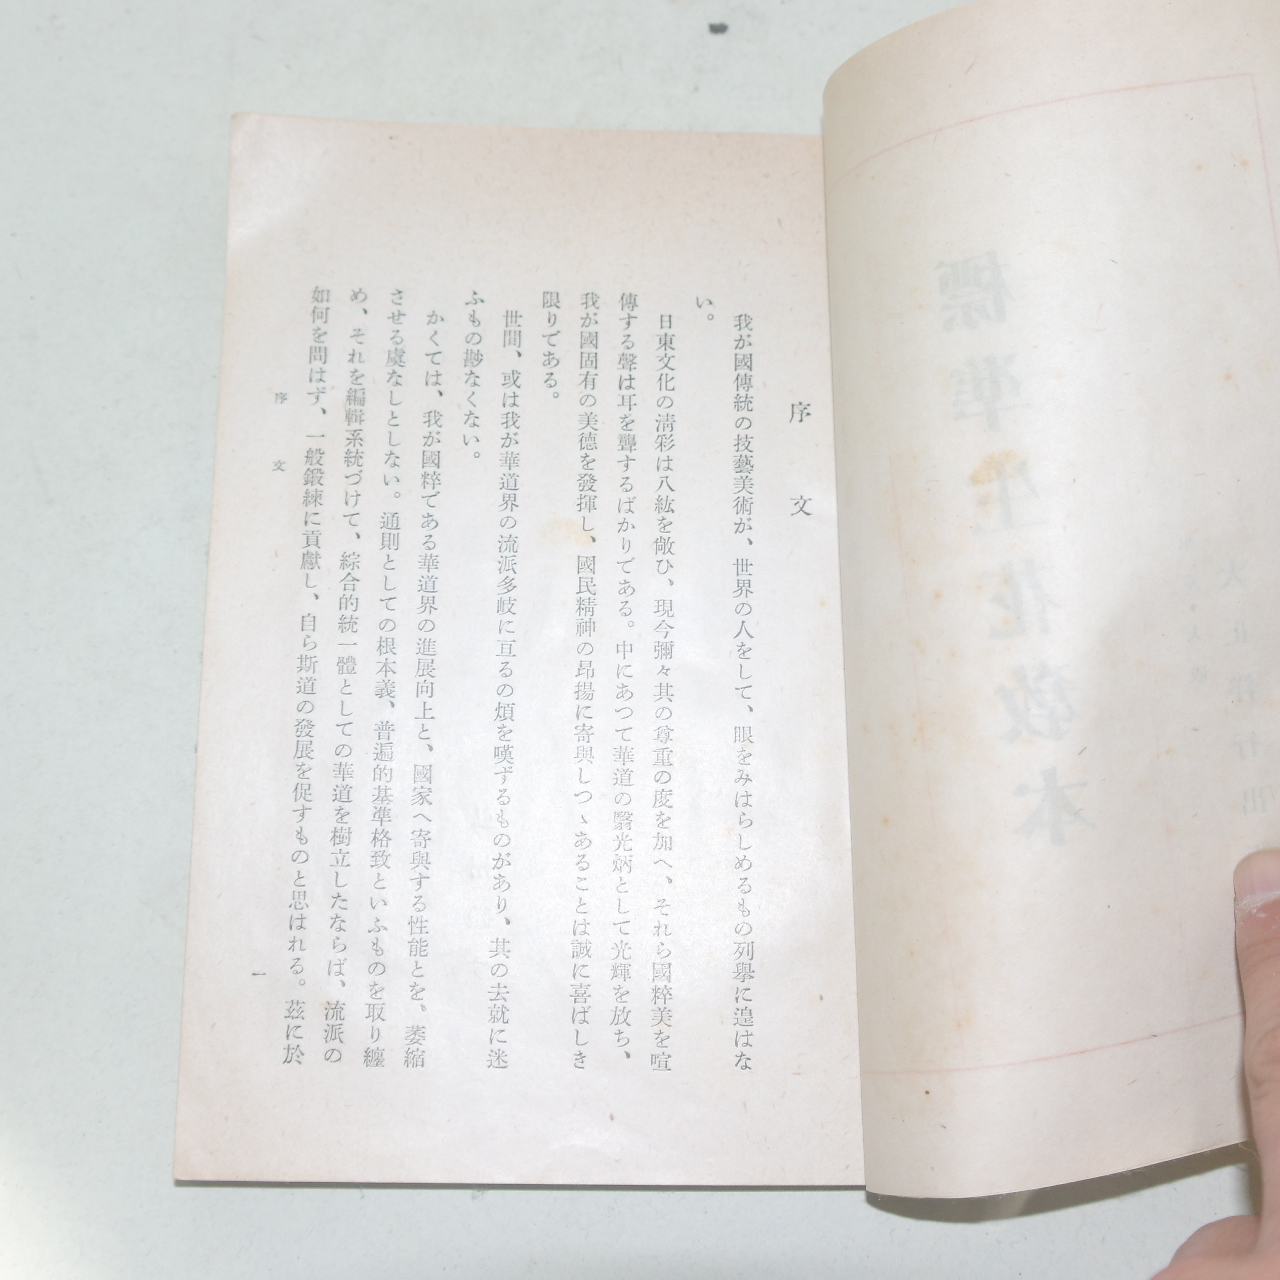 標準生花教本
序文
我が國傳統の技藝美術が、世界の人をして、眼をみはらしめるもの列擧に遑はな
い。
日東文化の淸彩は八紘を敞ひ、現今彌々其の尊重の度を加へ、それら國粹美を喧
傳する聲は耳を聾するばかりである。中にあつて華道の翳光炳として光輝を放ち、
我が國固有の美德を發揮し、國民精神の昂揚に寄與しつゝあることは誠に喜ばしき
限りである。
世間、或は我が華道界の流派多岐に亘るの煩を嘆ずるものがあり、其の去就に迷
ふもの尠なくない。
かくては、我が國粹である華道界の進展向上と、國家へ寄與する性能とを、萎縮
させる虞なしとしない。通則としての根本義、普遍的基準格致といふものを取り纏
め、それを編輯系統づけて、綜合的統一體としての華道を樹立したならば、流派の
如何を問はず、一般鍛練に貢獻し、自ら斯道の發展を促すものと思はれる。茲に於
序文
一